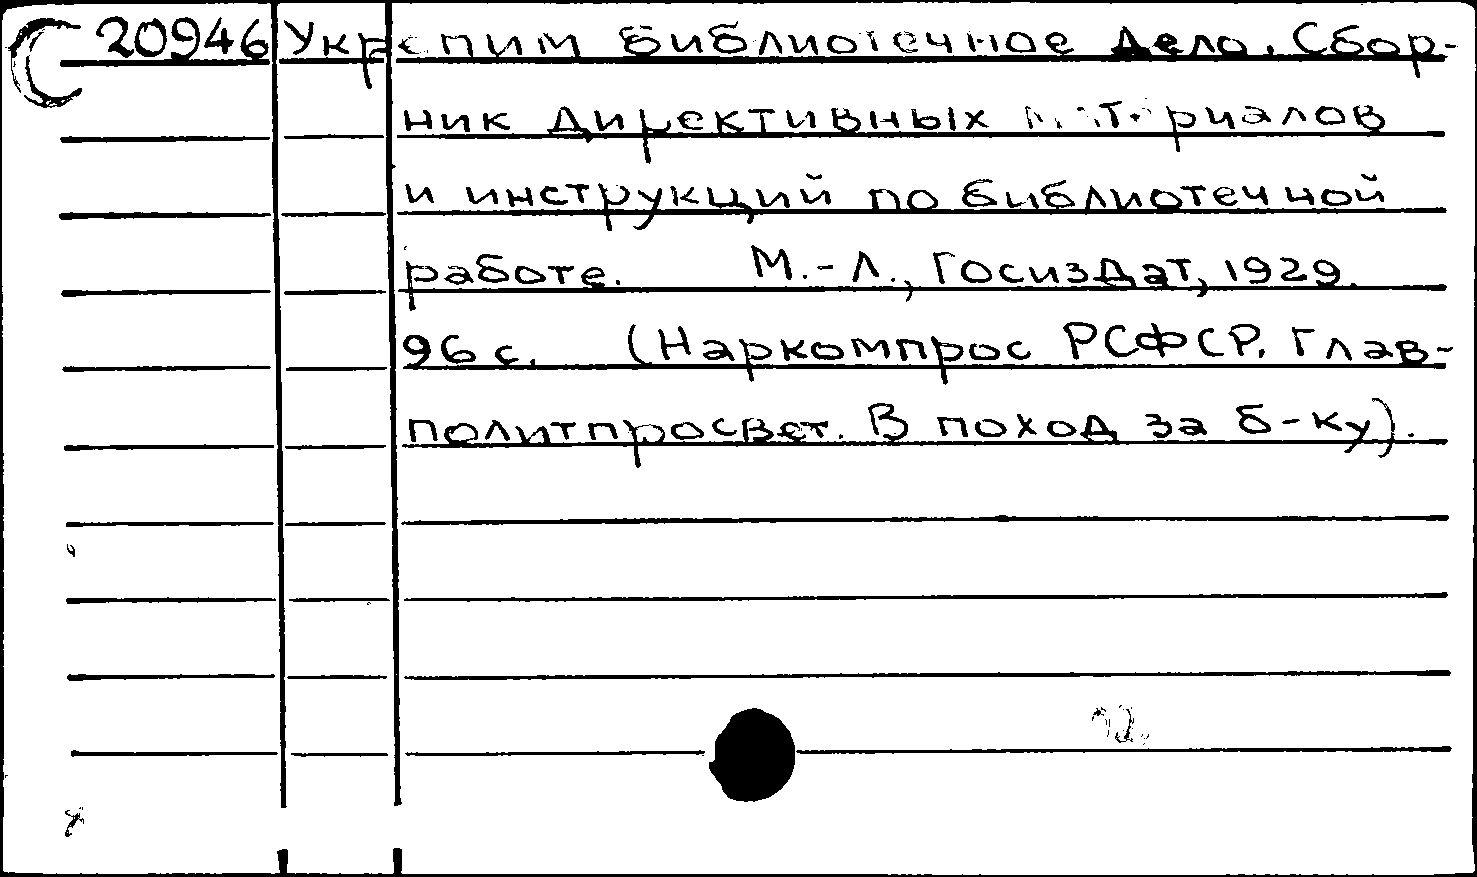 С 20946 Укрепим библиотечное дело. Сбор-
ник директивных материалов
и инструкций по библиотечной
работе. М.-Л., Госиздат, 1929.
96 с. (Наркомпрос РСФСР. Глав-
политпросвет. В поход за б-ку).